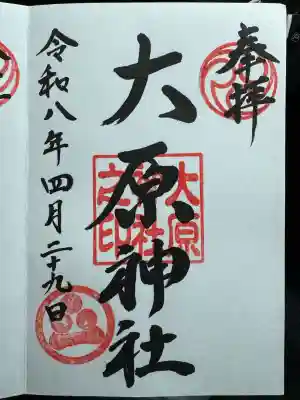 奉拝
大原神社
大原
神社
之印
令和八年四月二十九日